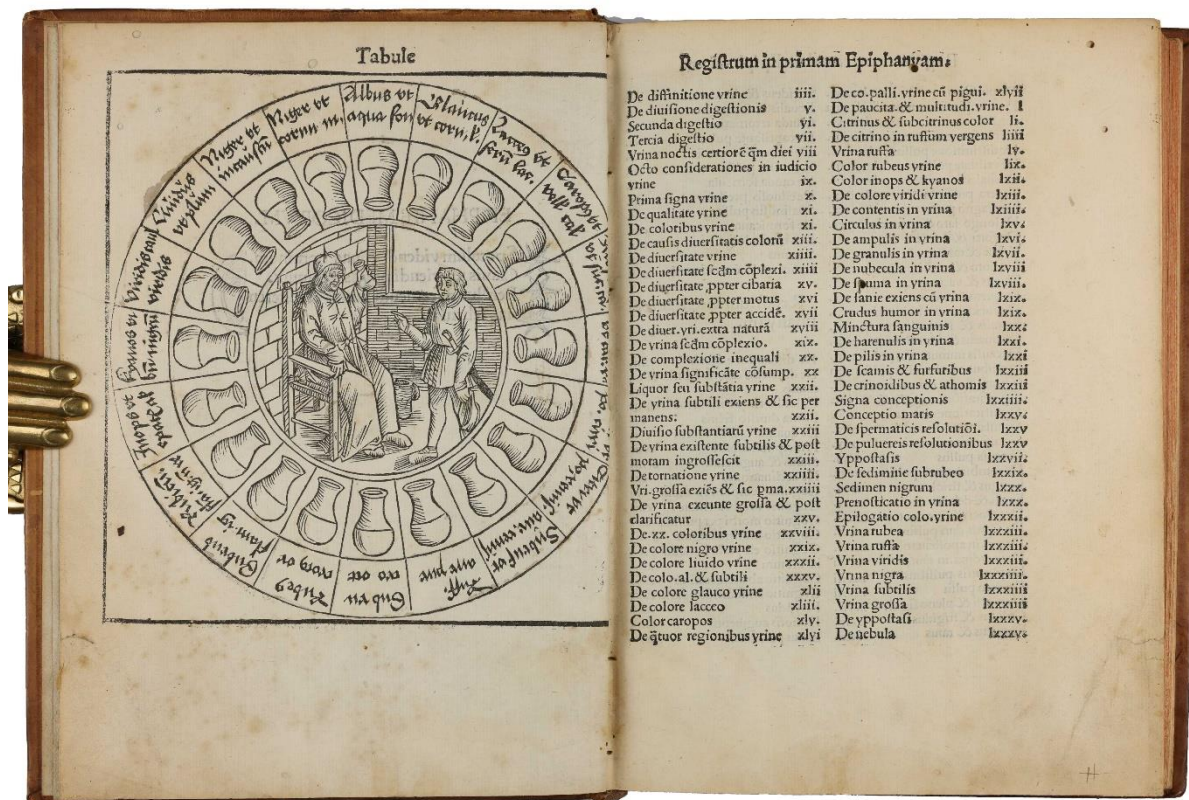 Tabule
Albus vt
aqua fon
Glaucus
vt corn. l.
Lacteꝰ vt
serũ lac.
Subrufus
Ruff.
aur. pur
Sub ru
cro occ
Rubeꝰ
crorꝰ or
Rubicũ.
Inops vt
Kyanos vt
Viridis vt
Liuidus
vt plum
Niger vt
incaustũ
Niger vt
cornu ni.
Registrum in primam Epiphanyam.
De diffinitione vrine iiii.
De diuisione digestionis v.
Secunda digestio vi.
Tercia digestio vii.
Vrina noctis certiorẽ q̃m diei viii
Octo considerationes in iudicio
vrine ix.
Prima signa vrine x.
De qualitate vrine xi.
De coloribus vrine xi.
De causis diuersitatis colorũ xiii.
De diuersitate vrine xiiii.
De diuersitate scdm cõplexi. xiiii
De diuersitate ꝓpter cibaria xv.
De diuersitate ꝓpter motus xvi
De diuersitate ꝓpter accidẽ. xvii
De diuer. yri. extra naturã xviii
De vrina scdm cõplexio. xix.
De complexione inequali xx.
De vrina significãte cõsump. xx
Liquor seu substãtia vrine xxii.
De vrina subtili exiens & sic per
manens. xxii.
Diuisio substantiarũ vrine xxiii
De vrina existente subtilis & post
moram ingrossescit xxiii.
De tornatione vrine xxiiii.
Vri. grossa exiẽs & sic pma. xxiiii
De vrina exeunte grossa & post
clarificatur xxv.
De. xx. coloribus vrine xxviii.
De colore nigro vrine xxix.
De colore liuido vrine xxxii.
De colo. al. & subtili xxxv.
De colore glauco vrine xlii
De colore lacceo xliii.
Color caropos xlv.
De q̃tuor regionibus vrine xlvi
De co. palli. vrine cũ pigui. xlvii
De paucita. & multitudi. vrine. l
Citrinus & subcitrinus color li.
De citrino in ruffum vergens liiii
Vrina ruffa lv.
Color rubeus vrine lix.
Color inops & kyanos lxii.
De colore viridi vrine lxiii.
De contentis in vrina lxiiii.
Circulus in vrina lxv.
De ampulis in vrina lxvi.
De granulis in vrina lxvii.
De nubecula in vrina lxviii
De spuma in vrina lxviii.
De sanie exiens cũ vrina lxix.
Crudus humor in vrina lxix.
Minctura sanguinis lxx.
De harenulis in vrina lxxi.
De pilis in vrina lxxi
De scamis & furfutibus lxxiii
De crinoidibus & athomis lxxiii
Signa conceptionis lxxiiii.
Conceptio maris lxxv.
De spermaticis resolutiõi. lxxv
De puluereis resolutionibus lxxv
Yppostasis lxxvii.
De sedimine subrubeo lxxix.
Sedimen nigrum lxxx.
Prenosticatio in vrina lxxx.
Epilogatio colo. vrine lxxxii.
Vrina rubea lxxxiii.
Vrina ruffa lxxxiii.
Vrina viridis lxxxiii.
Vrina nigra lxxxiiii.
Vrina subtilis lxxxiiii
Vrina grossa lxxxiiii
De yppostasi lxxxv.
De nebula lxxxv.